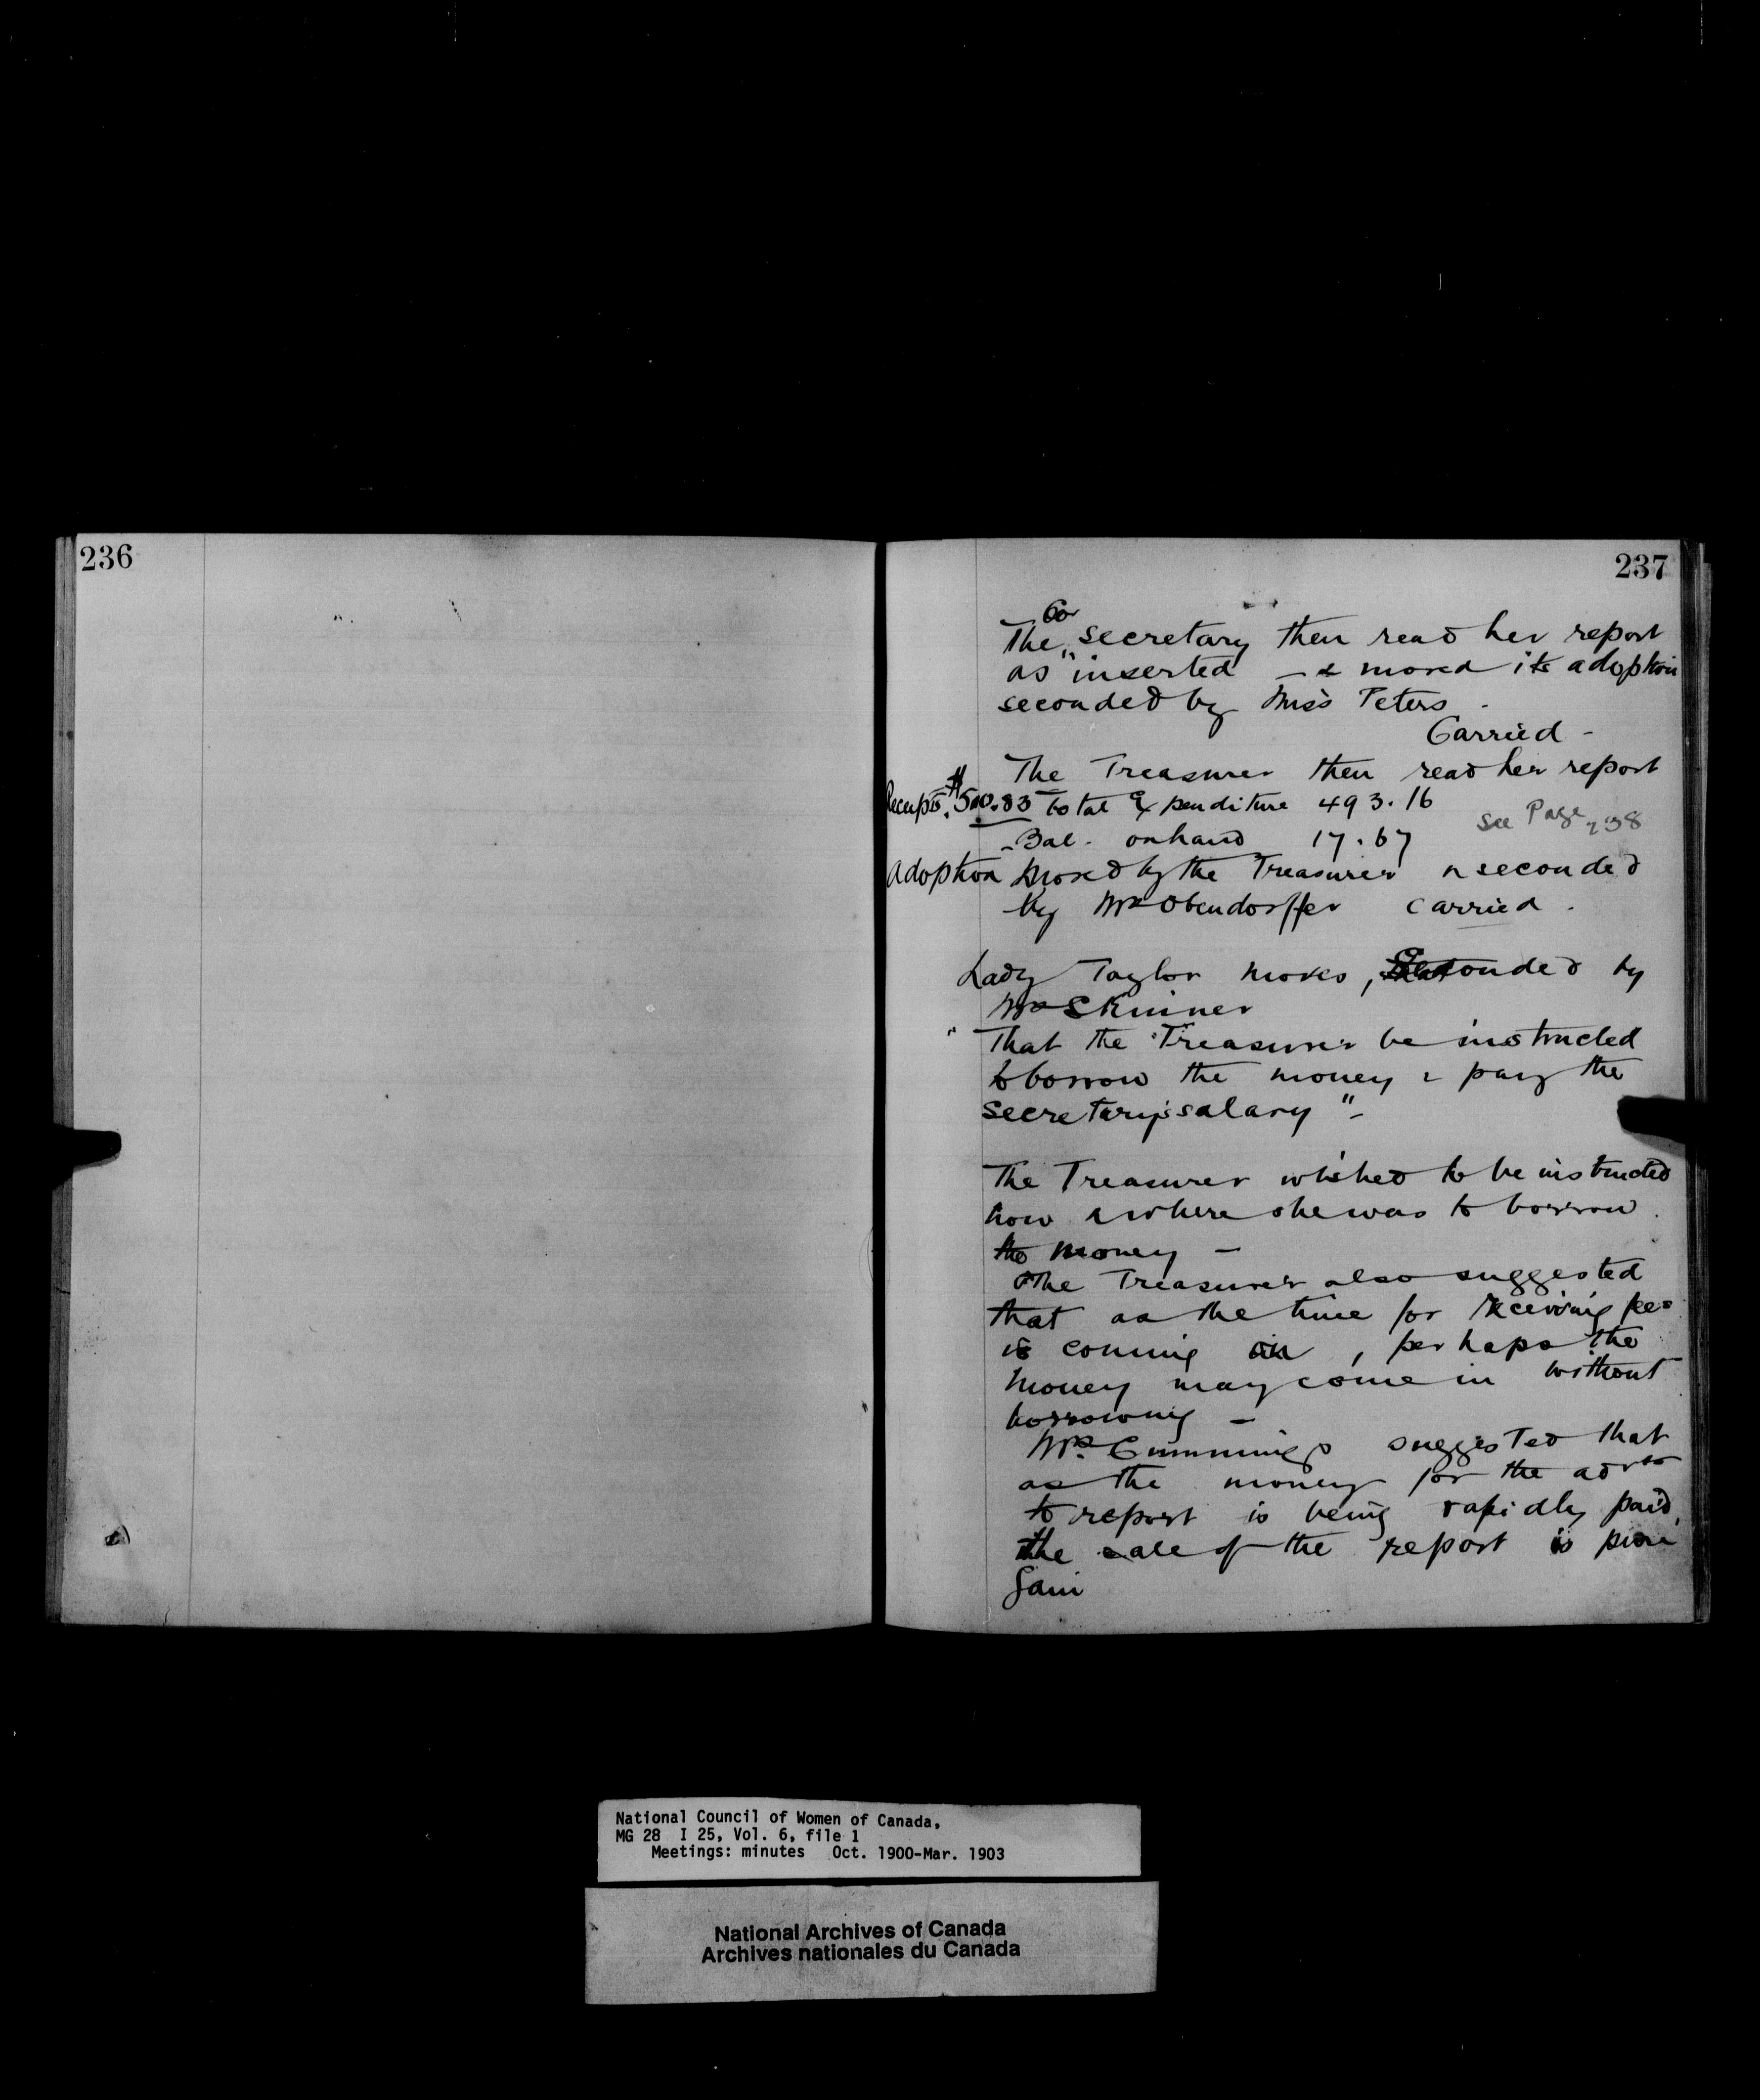 236
237
Cor
The secretary then read her report
as inserted - & moved its adoption
seconded by Miss Peters -
Carried -
The Treasurer then read her report
Receipts. $500.83 total Expenditure 493.16
Bal. on hand 17.67
see Page 238
adoption moved by the Treasurer & seconded
by Mrs Obendorffer carried.
Lady Taylor moves, Seconded by
Mrs Skinner
" That the Treasurer be instructed
to borrow the money & pay the
secretary's salary " -
The Treasurer wished to be instructed
how & where she was to borrow
the money -
The Treasurer also suggested
that as the time for receiving fees
is coming on, perhaps the
money may come in without
borrowing -
Mrs Cummings suggested that
as the money for the advts
to report is being rapidly paid,
the sale of the report is pure
gain
National Council of Women of Canada,
MG 28 I 25, Vol. 6, file 1
Meetings: minutes Oct. 1900-Mar. 1903
National Archives of Canada
Archives nationales du Canada